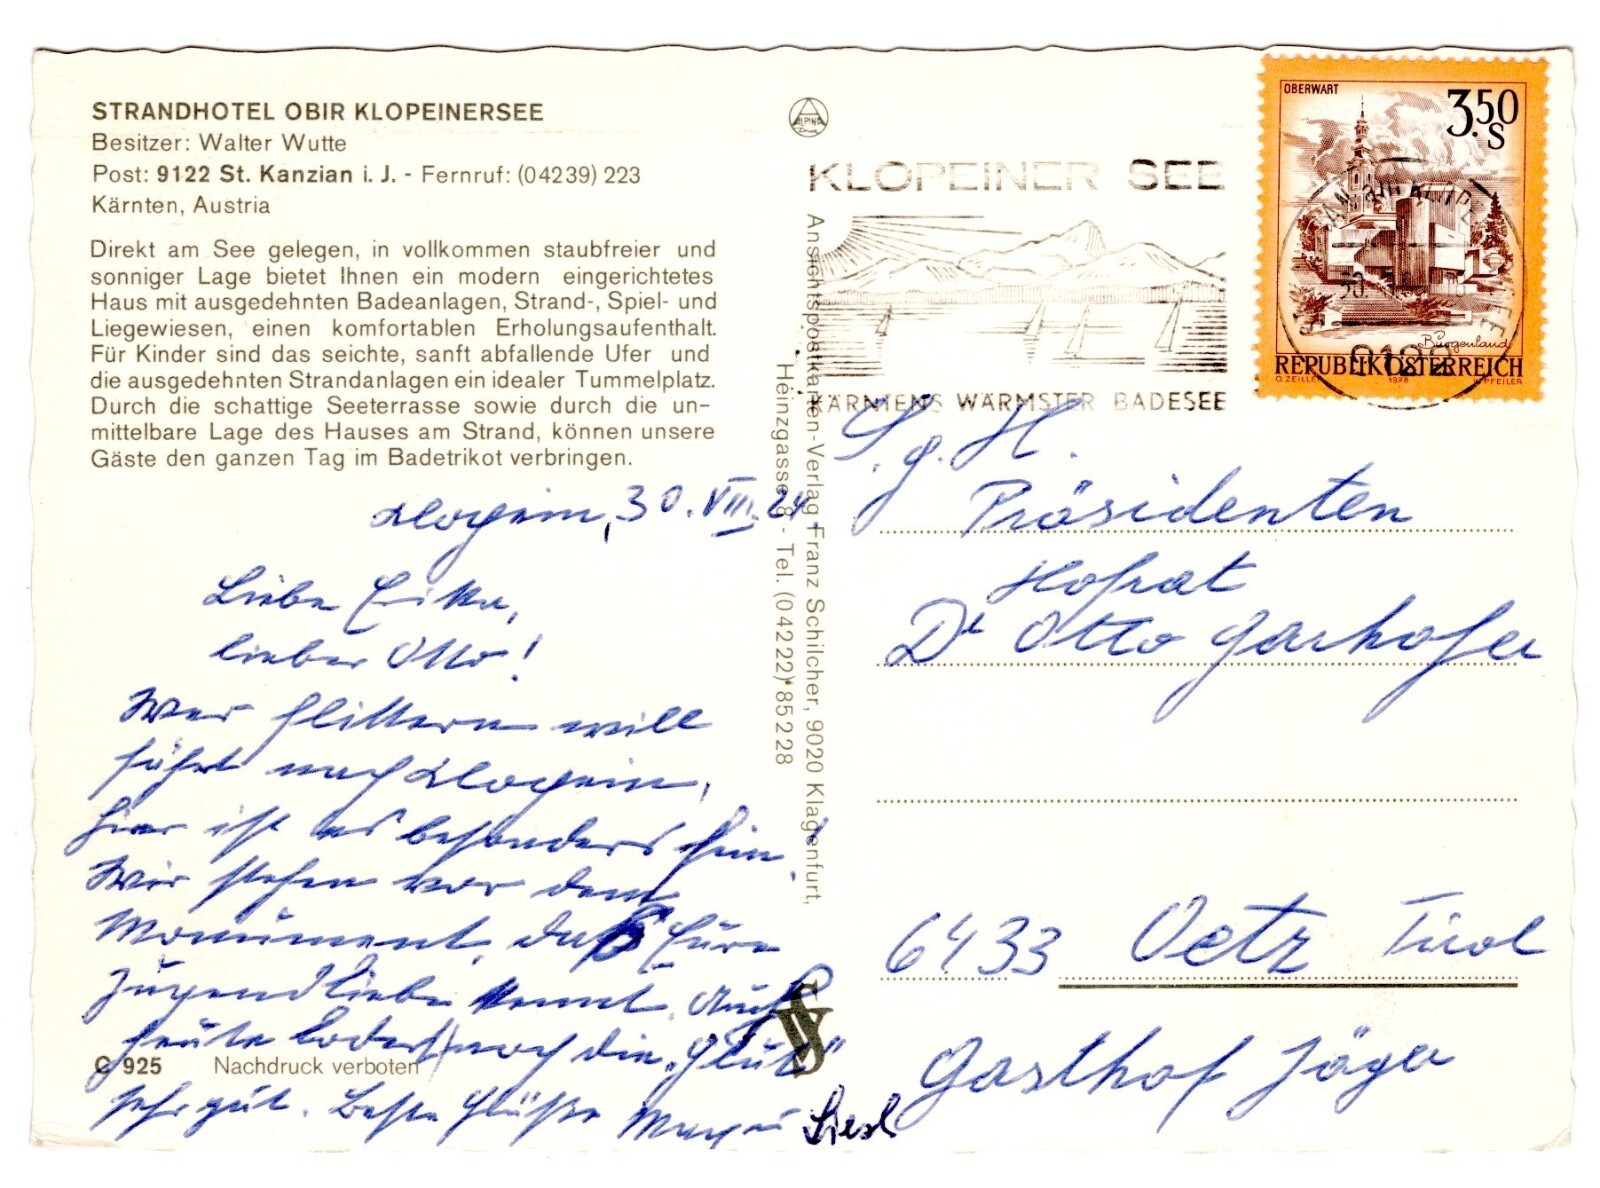 STRANDHOTEL OBIR KLOPEINERSEE
Besitzer: Walter Wutte
Post: 9122 St. Kanzian i. J. - Fernruf: (04239) 223
Kärnten, Austria
Direkt am See gelegen, in vollkommen staubfreier und
sonniger Lage bietet Ihnen ein modern eingerichtetes
Haus mit ausgedehnten Badeanlagen, Strand-, Spiel- und
Liegewiesen, einen komfortablen Erholungsaufenthalt.
Für Kinder sind das seichte, sanft abfallende Ufer und
die ausgedehnten Strandanlagen ein idealer Tummelplatz.
Durch die schattige Seeterrasse sowie durch die un-
mittelbare Lage des Hauses am Strand, können unsere
Gäste den ganzen Tag im Badetrikot verbringen.
Klopein, 30. VIII.
Liebe Erika,
lieber Otto!
Wer flittern will
fährt nach Klopein,
hier ist es besonders fein.
Wir stehen vor dem
Monument, das Eure
Jugendliebe kennt. Auch
heute lodert noch die "Glut"
sehr gut. Beste Grüße
Liesl
C 925
Nachdruck verboten
Ansichtspostkarten-Verlag Franz Schilcher, 9020 Klagenfurt,
Heinzgasse 8 - Tel. (04222) 85228
ALPINA
Druck
KLOPEINER SEE
KÄRNTENS WÄRMSTER BADESEE
OBERWART
3.50
S
Burgenland
REPUBLIK ÖSTERREICH
O. ZEILLER
1976
W. PFEILER
9122
S. g. H.
Präsidenten
Hofrat
Dr Otto Garhofer
6433 Oetz Tirol
Gasthof Jäger